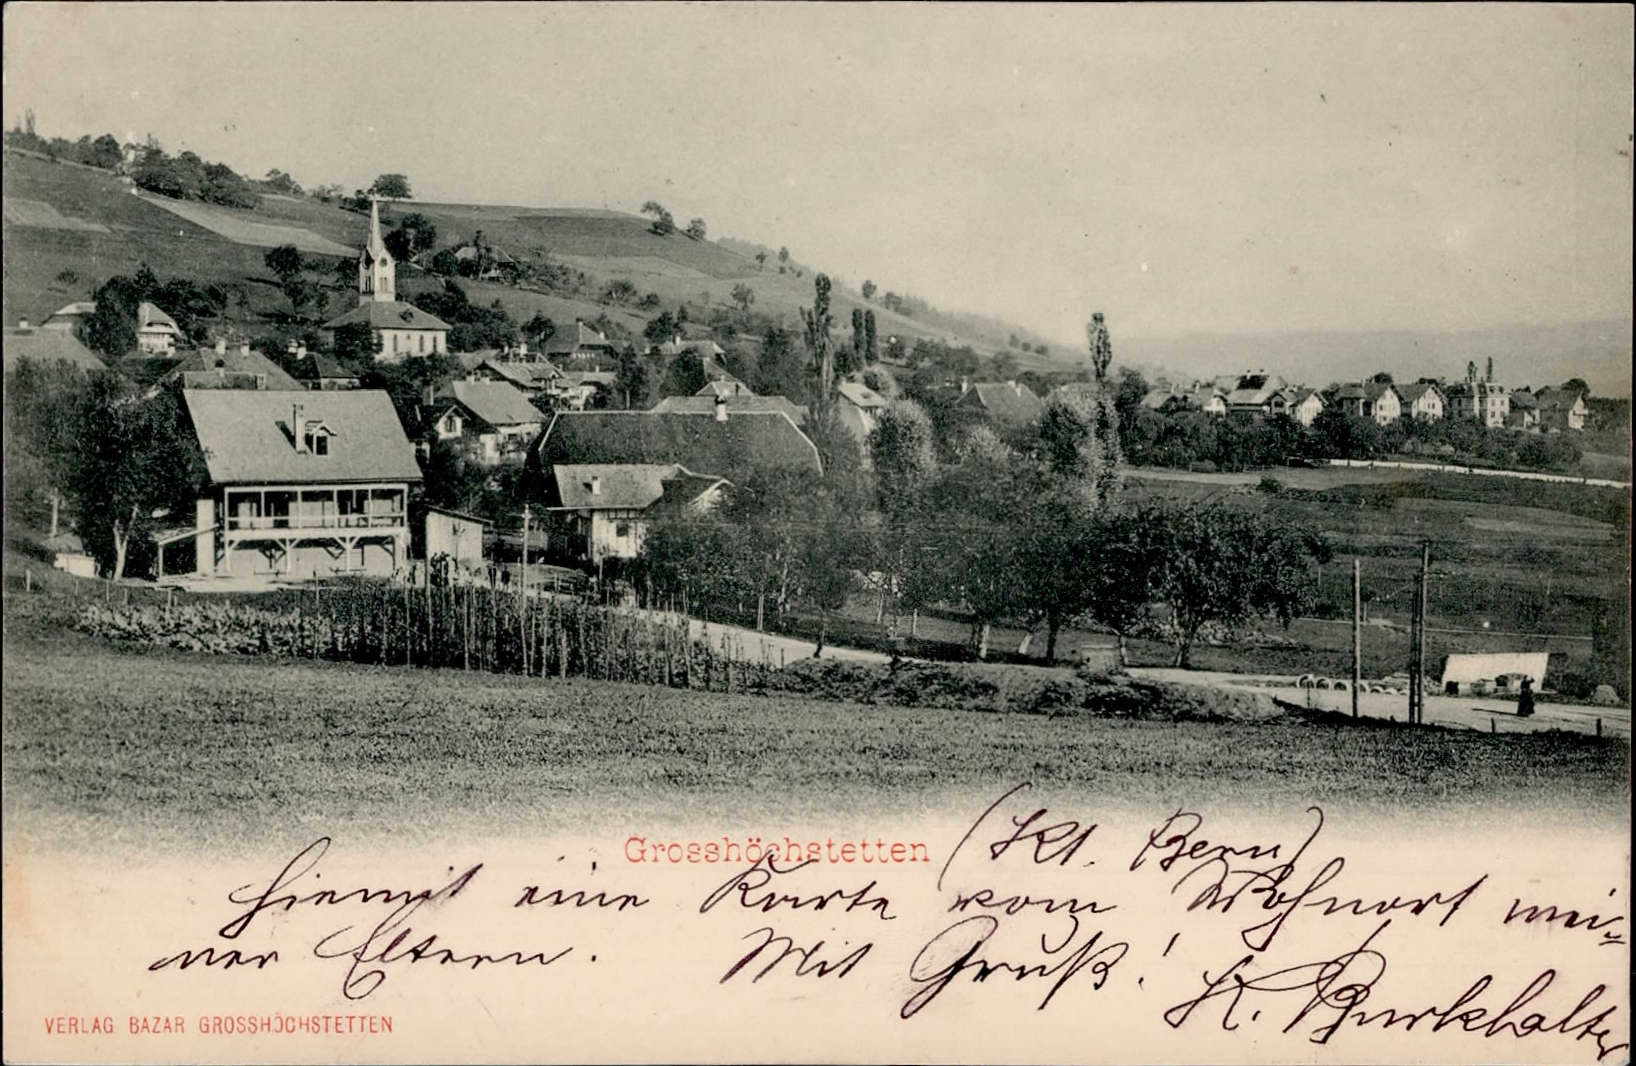 Grosshöchstetten (Kt. Bern)
Hiemit eine Karte vom Wohnort mei-
ner Eltern. Mit Gruß!
K. Burkhalter
VERLAG BAZAR GROSSHÖCHSTETTEN